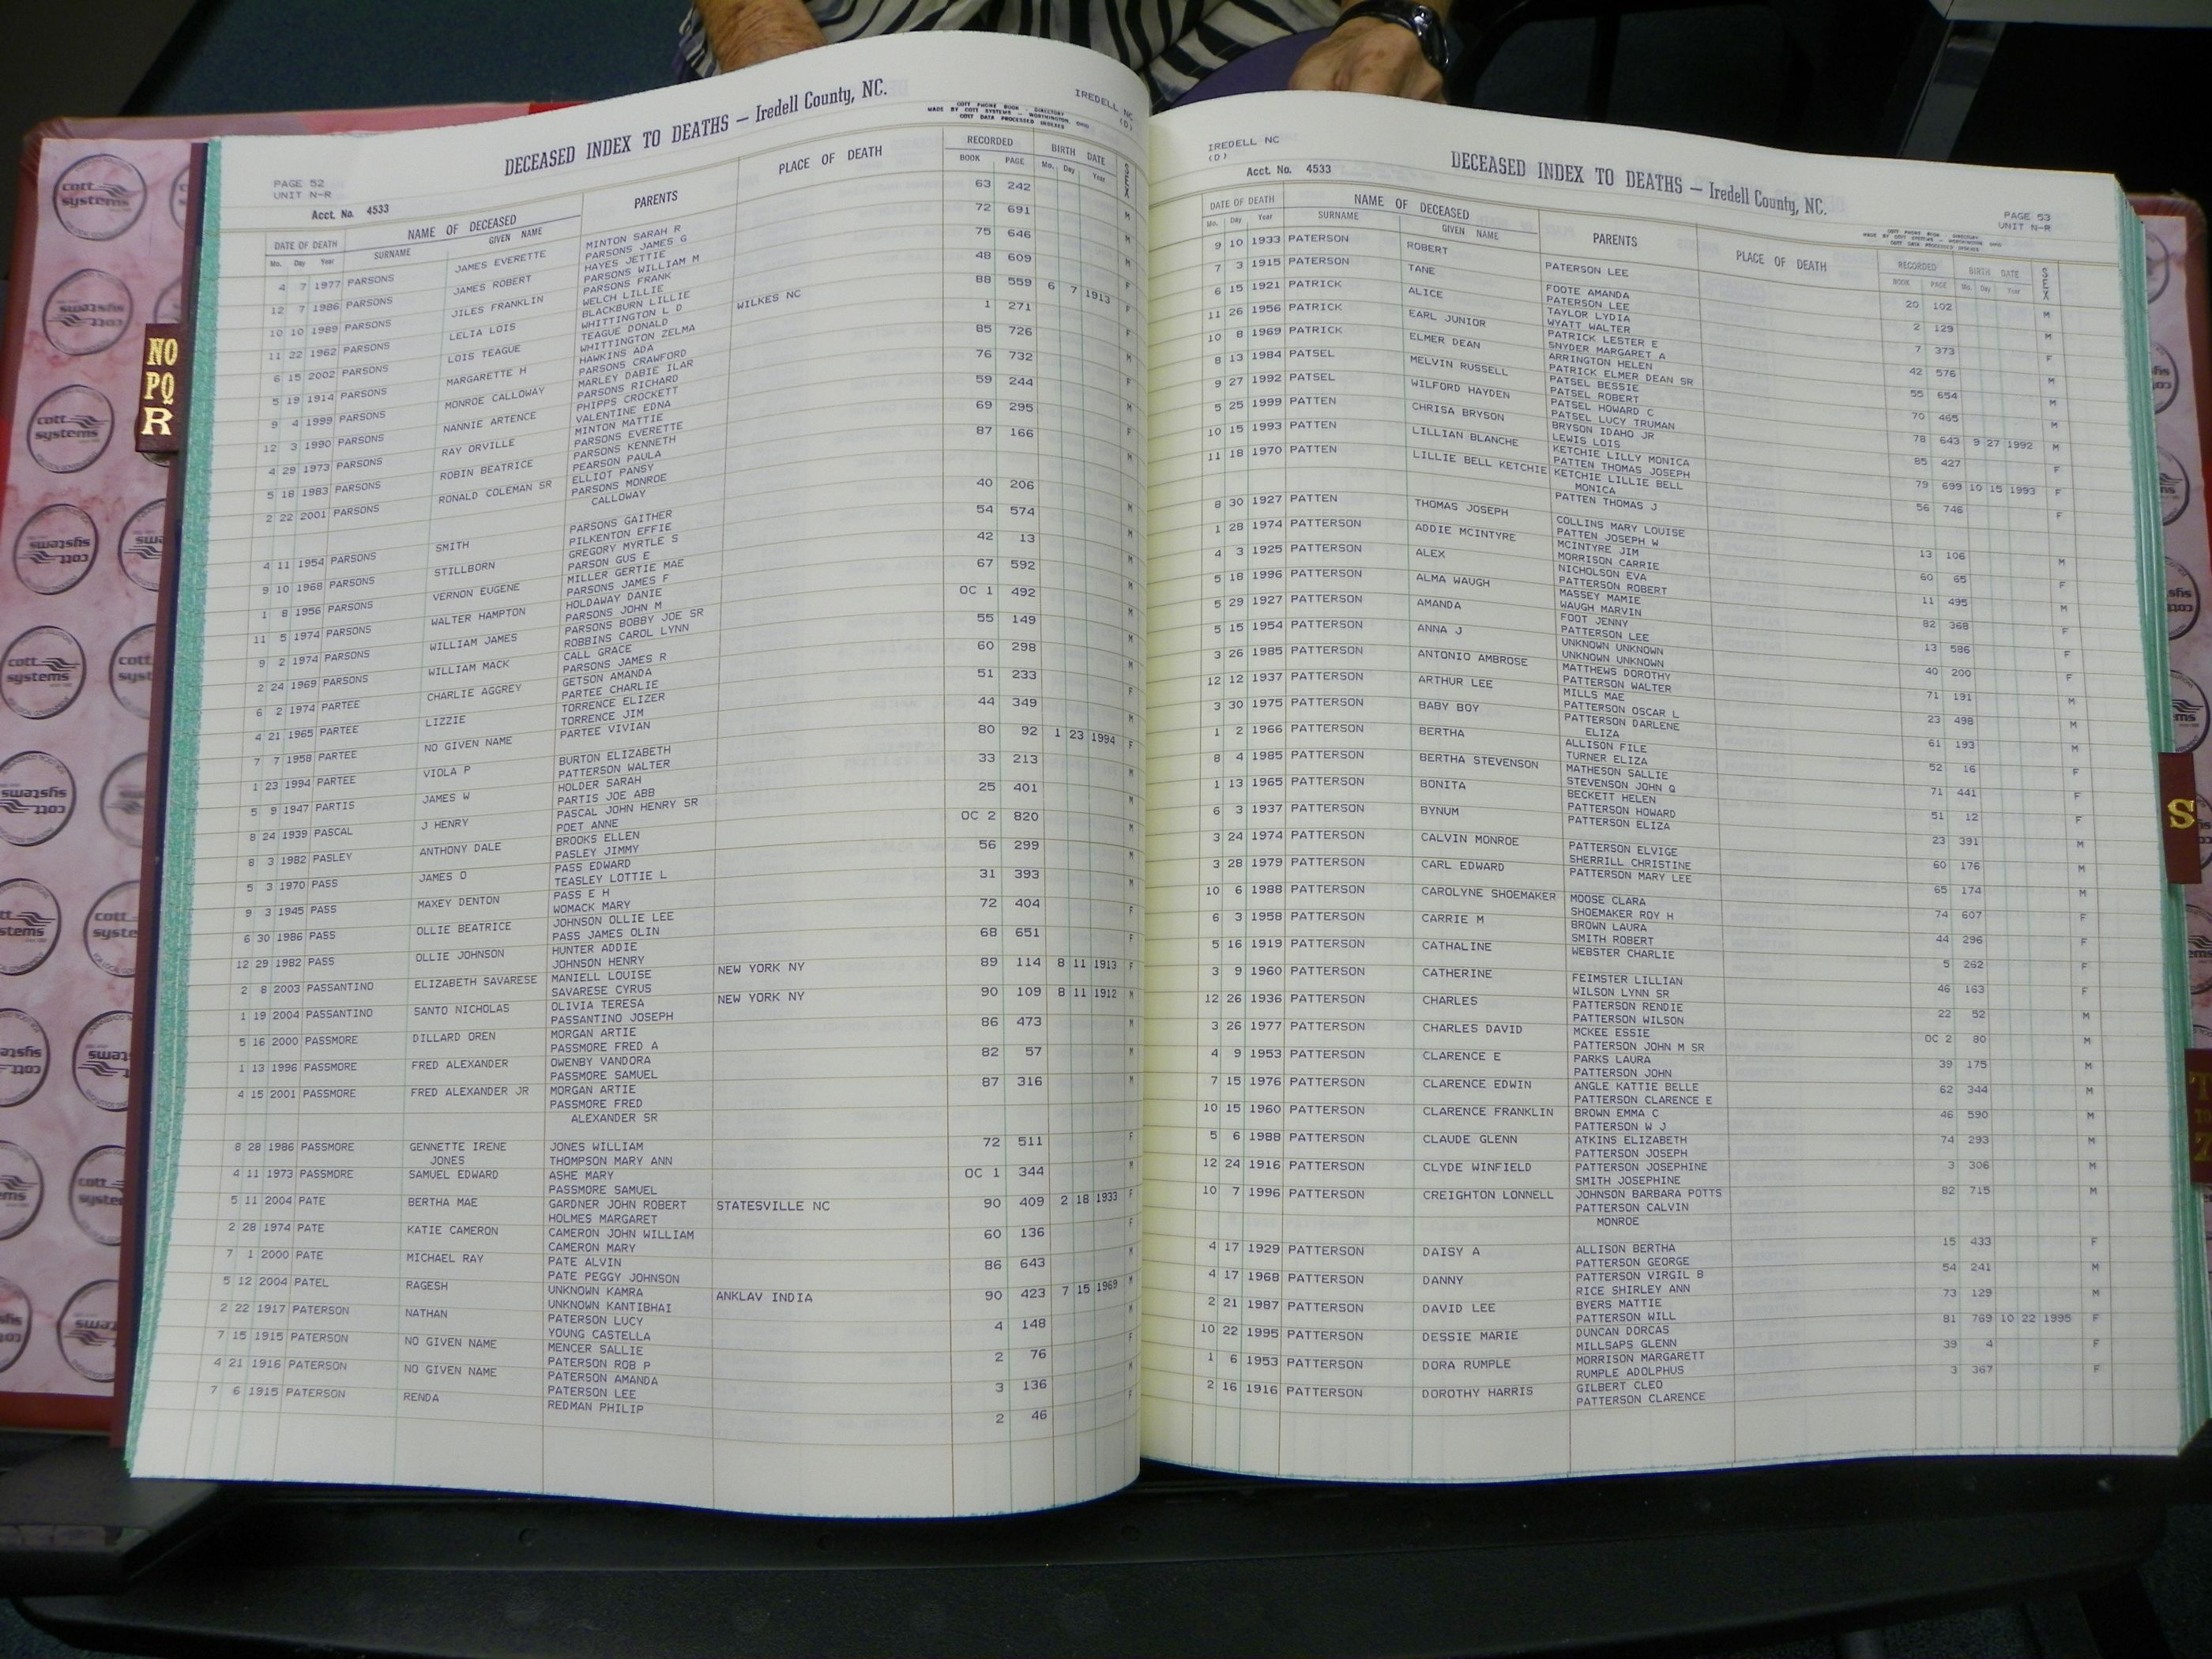 DECEASED INDEX TO DEATHS — Iredell County, NC.
IREDELL NC
(D)
COTT PHONE BOOK - DIRECTORY
MADE BY COTT SYSTEMS — WORTHINGTON, OHIO
COTT DATA PROCESSED INDEXES
PAGE 52
UNIT N-R
Acct. No. 4533
DATE OF DEATH NAME OF DECEASED PARENTS PLACE OF DEATH RECORDED BIRTH DATE SEX
Mo. Day Year SURNAME GIVEN NAME BOOK PAGE Mo. Day Year
4 7 1977 PARSONS JAMES EVERETTE MINTON SARAH R 63 242 M
PARSONS JAMES G
12 7 1986 PARSONS JAMES ROBERT HAYES JETTIE 72 691 M
PARSONS WILLIAM M
10 10 1989 PARSONS JILES FRANKLIN PARSONS FRANK 75 646 M
WELCH LILLIE
11 22 1962 PARSONS LELIA LOIS BLACKBURN LILLIE 48 609 F
WHITTINGTON L D
6 15 2002 PARSONS LOIS TEAGUE TEAGUE DONALD WILKES NC 88 559 6 7 1913 F
WHITTINGTON ZELMA
5 19 1914 PARSONS MARGARETTE H HAWKINS ADA 1 271 F
PARSONS CRAWFORD
9 4 1999 PARSONS MONROE CALLOWAY MARLEY DABIE ILAR 85 726 M
PARSONS RICHARD
12 3 1990 PARSONS NANNIE ARTENCE PHIPPS CROCKETT 76 732 F
VALENTINE EDNA
4 29 1973 PARSONS RAY ORVILLE MINTON MATTIE 59 244 M
PARSONS EVERETTE
5 18 1983 PARSONS ROBIN BEATRICE PARSONS KENNETH 69 295 F
PEARSON PAULA
2 22 2001 PARSONS RONALD COLEMAN SR ELLIOT PANSY 87 166 M
PARSONS MONROE
CALLOWAY
4 11 1954 PARSONS SMITH PARSONS GAITHER 40 206 M
PILKENTON EFFIE
9 10 1968 PARSONS STILLBORN GREGORY MYRTLE S 54 574 M
PARSON GUS E
1 8 1956 PARSONS VERNON EUGENE MILLER GERTIE MAE 42 13 M
PARSONS JAMES F
11 5 1974 PARSONS WALTER HAMPTON HOLDAWAY DANIE 67 592 M
PARSONS JOHN M
9 2 1974 PARSONS WILLIAM JAMES PARSONS BOBBY JOE SR OC 1 492 M
ROBBINS CAROL LYNN
2 24 1969 PARSONS WILLIAM MACK CALL GRACE 55 149 M
PARSONS JAMES R
6 2 1974 PARTEE CHARLIE AGGREY GETSON AMANDA 60 298 M
PARTEE CHARLIE
4 21 1965 PARTEE LIZZIE TORRENCE ELIZER 51 233 F
TORRENCE JIM
7 7 1958 PARTEE NO GIVEN NAME PARTEE VIVIAN 44 349 M
1 23 1994 PARTEE VIOLA P BURTON ELIZABETH 80 92 1 23 1994 F
PATTERSON WALTER
5 9 1947 PARTIS JAMES W HOLDER SARAH 33 213 M
PARTIS JOE ABB
8 24 1939 PASCAL J HENRY PASCAL JOHN HENRY SR 25 401 M
POET ANNE
8 3 1982 PASLEY ANTHONY DALE BROOKS ELLEN OC 2 820 M
PASLEY JIMMY
5 3 1970 PASS JAMES O PASS EDWARD 56 299 M
TEASLEY LOTTIE L
9 3 1945 PASS MAXEY DENTON PASS E H 31 393 M
WOMACK MARY
6 30 1986 PASS OLLIE BEATRICE JOHNSON OLLIE LEE 72 404 F
PASS JAMES OLIN
12 29 1982 PASS OLLIE JOHNSON HUNTER ADDIE 68 651 F
JOHNSON HENRY
2 8 2003 PASSANTINO ELIZABETH SAVARESE MANIELL LOUISE NEW YORK NY 89 114 8 11 1913 F
SAVARESE CYRUS
1 19 2004 PASSANTINO SANTO NICHOLAS OLIVIA TERESA NEW YORK NY 90 109 8 11 1912 M
PASSANTINO JOSEPH
5 16 2000 PASSMORE DILLARD OREN MORGAN ARTIE 86 473 M
PASSMORE FRED A
1 13 1996 PASSMORE FRED ALEXANDER OWENBY VANDORA 82 57 M
PASSMORE SAMUEL
4 15 2001 PASSMORE FRED ALEXANDER JR MORGAN ARTIE 87 316 M
PASSMORE FRED
ALEXANDER SR
8 28 1986 PASSMORE GENNETTE IRENE JONES WILLIAM 72 511 F
JONES THOMPSON MARY ANN
4 11 1973 PASSMORE SAMUEL EDWARD ASHE MARY OC 1 344 M
PASSMORE SAMUEL
5 11 2004 PATE BERTHA MAE GARDNER JOHN ROBERT STATESVILLE NC 90 409 2 18 1933 F
HOLMES MARGARET
2 28 1974 PATE KATIE CAMERON CAMERON JOHN WILLIAM 60 136 F
CAMERON MARY
7 1 2000 PATE MICHAEL RAY PATE ALVIN 86 643 M
PATE PEGGY JOHNSON
5 12 2004 PATEL RAGESH UNKNOWN KAMRA ANKLAV INDIA 90 423 7 15 1969 M
UNKNOWN KANTIBHAI
2 22 1917 PATERSON NATHAN PATERSON LUCY 4 148 M
YOUNG CASTELLA
7 15 1915 PATERSON NO GIVEN NAME MENCER SALLIE 2 76 F
PATERSON ROB P
4 21 1916 PATERSON NO GIVEN NAME PATERSON AMANDA 3 136 M
PATERSON LEE
7 6 1915 PATERSON RENDA REDMAN PHILIP 2 46 F
IREDELL NC
(D)
Acct. No. 4533
DECEASED INDEX TO DEATHS — Iredell County, NC.
PAGE 53
UNIT N-R
DATE OF DEATH NAME OF DECEASED PARENTS PLACE OF DEATH RECORDED BIRTH DATE SEX
Mo. Day Year SURNAME GIVEN NAME BOOK PAGE Mo. Day Year
9 10 1933 PATERSON ROBERT PATERSON LEE 20 102 M
7 3 1915 PATERSON TANE FOOTE AMANDA 2 129 M
PATERSON LEE
6 15 1921 PATRICK ALICE TAYLOR LYDIA 7 373 F
WYATT WALTER
11 26 1956 PATRICK EARL JUNIOR PATRICK LESTER E 42 576 M
SNYDER MARGARET A
10 8 1969 PATRICK ELMER DEAN ARRINGTON HELEN 55 654 M
PATRICK ELMER DEAN SR
8 13 1984 PATSEL MELVIN RUSSELL PATSEL BESSIE 70 465 M
PATSEL ROBERT
9 27 1992 PATSEL WILFORD HAYDEN PATSEL HOWARD C 78 643 9 27 1992 M
PATSEL LUCY TRUMAN
5 25 1999 PATTEN CHRISA BRYSON BRYSON IDAHO JR 85 427 F
LEWIS LOIS
10 15 1993 PATTEN LILLIAN BLANCHE KETCHIE LILLY MONICA 79 699 10 15 1993 F
PATTEN THOMAS JOSEPH
11 18 1970 PATTEN LILLIE BELL KETCHIE KETCHIE LILLIE BELL 56 746 F
MONICA
PATTEN THOMAS J
8 30 1927 PATTEN THOMAS JOSEPH COLLINS MARY LOUISE 13 106 M
PATTEN JOSEPH W
1 28 1974 PATTERSON ADDIE MCINTYRE MCINTYRE JIM 60 65 F
MORRISON CARRIE
4 3 1925 PATTERSON ALEX NICHOLSON EVA 11 495 M
PATTERSON ROBERT
5 18 1996 PATTERSON ALMA WAUGH MASSEY MAMIE 82 368 F
WAUGH MARVIN
5 29 1927 PATTERSON AMANDA FOOT JENNY 13 586 F
PATTERSON LEE
5 15 1954 PATTERSON ANNA J UNKNOWN UNKNOWN 40 200 F
UNKNOWN UNKNOWN
3 26 1985 PATTERSON ANTONIO AMBROSE MATTHEWS DOROTHY 71 191 M
PATTERSON WALTER
12 12 1937 PATTERSON ARTHUR LEE MILLS MAE 23 498 M
PATTERSON OSCAR L
3 30 1975 PATTERSON BABY BOY PATTERSON DARLENE 61 193 M
ELIZA
1 2 1966 PATTERSON BERTHA ALLISON FILE 52 16 F
TURNER ELIZA
8 4 1985 PATTERSON BERTHA STEVENSON MATHESON SALLIE 71 441 F
STEVENSON JOHN Q
1 13 1965 PATTERSON BONITA BECKETT HELEN 51 12 F
PATTERSON HOWARD
6 3 1937 PATTERSON BYNUM PATTERSON ELIZA 23 391 M
3 24 1974 PATTERSON CALVIN MONROE PATTERSON ELVIGE 60 176 M
SHERRILL CHRISTINE
3 28 1979 PATTERSON CARL EDWARD PATTERSON MARY LEE 65 174 M
10 6 1988 PATTERSON CAROLYNE SHOEMAKER MOOSE CLARA 74 607 F
SHOEMAKER ROY H
6 3 1958 PATTERSON CARRIE M BROWN LAURA 44 296 F
SMITH ROBERT
5 16 1919 PATTERSON CATHALINE WEBSTER CHARLIE 5 262 F
3 9 1960 PATTERSON CATHERINE FEIMSTER LILLIAN 46 163 F
WILSON LYNN SR
12 26 1936 PATTERSON CHARLES PATTERSON RENDIE 22 52 M
PATTERSON WILSON
3 26 1977 PATTERSON CHARLES DAVID MCKEE ESSIE OC 2 80 M
PATTERSON JOHN M SR
4 9 1953 PATTERSON CLARENCE E PARKS LAURA 39 175 M
PATTERSON JOHN
7 15 1976 PATTERSON CLARENCE EDWIN ANGLE KATTIE BELLE 62 344 M
PATTERSON CLARENCE E
10 15 1960 PATTERSON CLARENCE FRANKLIN BROWN EMMA C 46 590 M
PATTERSON W J
5 6 1988 PATTERSON CLAUDE GLENN ATKINS ELIZABETH 74 293 M
PATTERSON JOSEPH
12 24 1916 PATTERSON CLYDE WINFIELD PATTERSON JOSEPHINE 3 306 M
SMITH JOSEPHINE
10 7 1996 PATTERSON CREIGHTON LONNELL JOHNSON BARBARA POTTS 82 715 M
PATTERSON CALVIN
MONROE
4 17 1929 PATTERSON DAISY A ALLISON BERTHA 15 433 F
PATTERSON GEORGE
4 17 1968 PATTERSON DANNY PATTERSON VIRGIL B 54 241 M
RICE SHIRLEY ANN
2 21 1987 PATTERSON DAVID LEE BYERS MATTIE 73 129 M
PATTERSON WILL
10 22 1995 PATTERSON DESSIE MARIE DUNCAN DORCAS 81 769 10 22 1995 F
MILLSAPS GLENN
1 6 1953 PATTERSON DORA RUMPLE MORRISON MARGARETT 39 4 F
RUMPLE ADOLPHUS
2 16 1916 PATTERSON DOROTHY HARRIS GILBERT CLEO 3 367 F
PATTERSON CLARENCE
NO
PQ
R
S
cott
systems